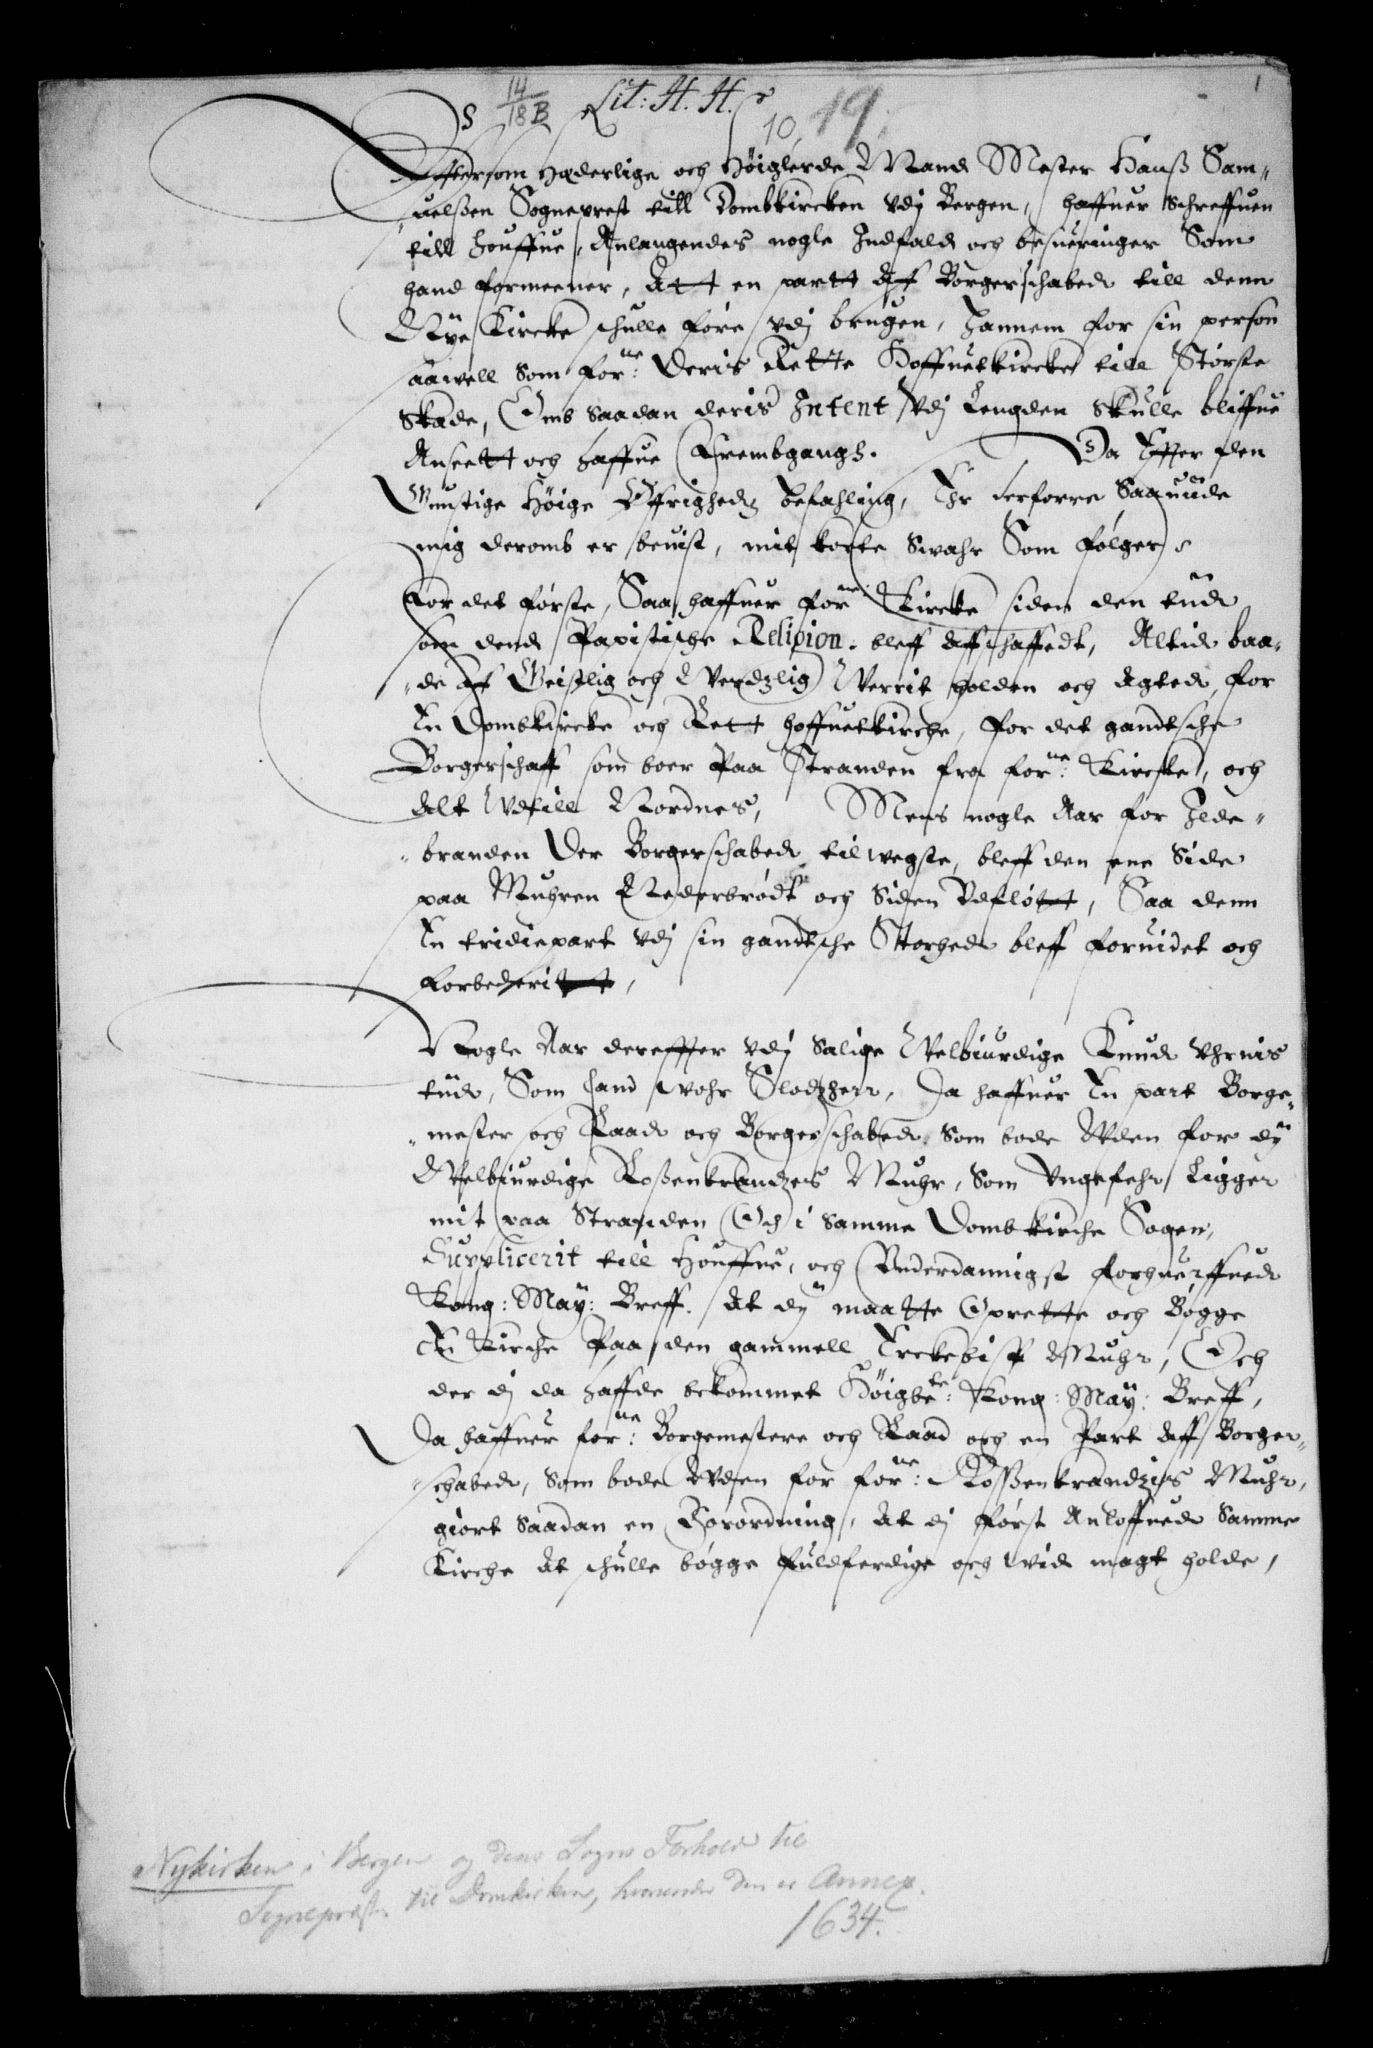 S 14/18 B Lit: H. H. 1
10, 19.
Effttersom Hæderlige och Höiglerde Mand Mester Hanß Sam-
uelßen Sogneprest till Dombkircken vdj Bergen, haffuer schreffuen
till Houffue, Anlangendes nogle Indfald och besueringer Som
hand formeener, Att en partt Aff Borgerschabed till denn
Nye Kircke schulle före vdj brugen, Hannem for sin person
saawell som for:ne Deris Rette Hoffuetkircke till Störste
Skade, Omb saadan deris Intent vdj Lengden Skulle bliffue
Anseett och haffue Frembgangh. Da Effter den
Gunstige Höige Öffrigheds befahling, Er derforre Saauiide
mig deromb er beuist, mit korte Swahr Som fölger
For det förste, Saa haffuer for:ne Kircke siden den tiid
som dend Papistische Religion bleff affschaffedt, Altid baa-
de aff Geistlig och Werdzlig Werrit holden och Agted, for
En Dombkircke och Rett hoffuetkirche, for det gandtsche
Borgerschaff som boer Paa Stranden fra for:ne Kircke, och
Alt Udtill Nordnes, Mens nogle Aar for Ilde-
branden Der Borgerschabed tilwogste, bleff den ene Side
paa Muhren Nederbrödt och Siden Udflött, Saa denn
En tridiepart vdj sin gandtsche Storhed bleff foruidet och
forbederitt,
Nogle Aar dereffter vdj Salige Welbiurdige Knud Vhrnis
tiid, Som hand wahr Slodzherr, Da haffuer En part Borge-
mester och Raad och Borgerschabed som bode Uden for dy
Welbiurdige Roßenkrandzes Muhr, Som Ungefehr Ligger
mit paa Stranden Och i Samme Dombkirche Sogen,
Supplicerit till Houffue, och Underdannigst forhuerffued
Kong: May: Breff. At dy maatte Oprette och Bögge
En Kirche Paa den gammell Erckebisp Muhr, Och
der dj da haffde bekommet Höigbe:te Kong: May: Breff,
Da haffuer for:ne Borgemestere och Raad och en Part Aff Borger-
schabed, som bode Uden for for:ne Rossenkrandzis Muhr,
giort Saadan en Forordning, At dj först Anloffued Samme
Kirche At schulle bögge fuldferdige och wid magt holde,
Nykirken i Bergen og dens Sogns Forhold til
Sognepræsten til Domkirken, hvorunder den er Annex.
1634.